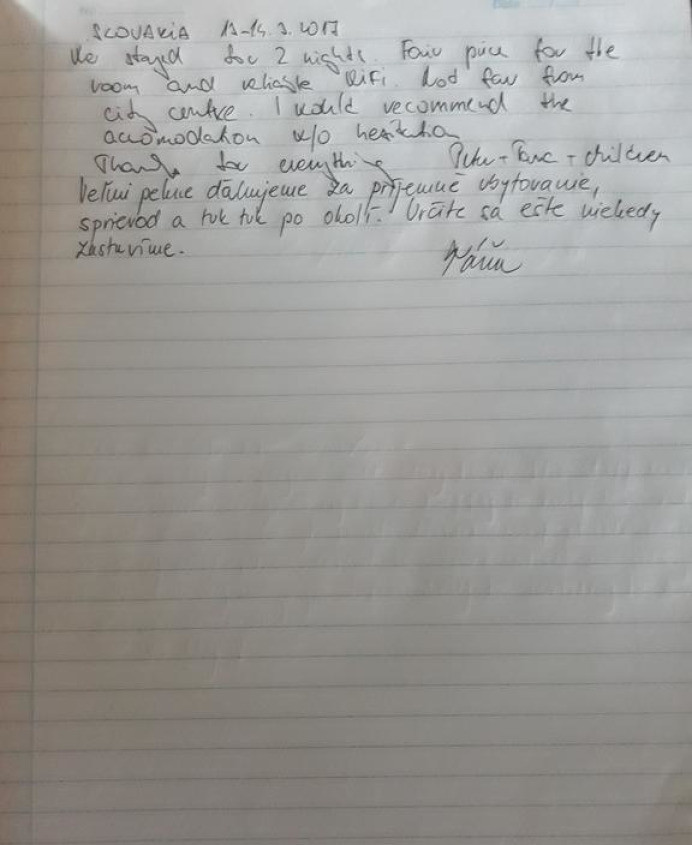 SLOVAKIA 13-14.3.2017
We stayed for 2 nights. Fair price for the
room and reliable WiFi. Not far from
city centre. I would recommend the
accomodation w/o hesitation
Thanks for everything Peter + + children
Veľmi pekne ďakujeme za príjemné ubytovanie,
sprievod a tuk tuk po okolí. Určite sa ešte niekedy
zastavíme.